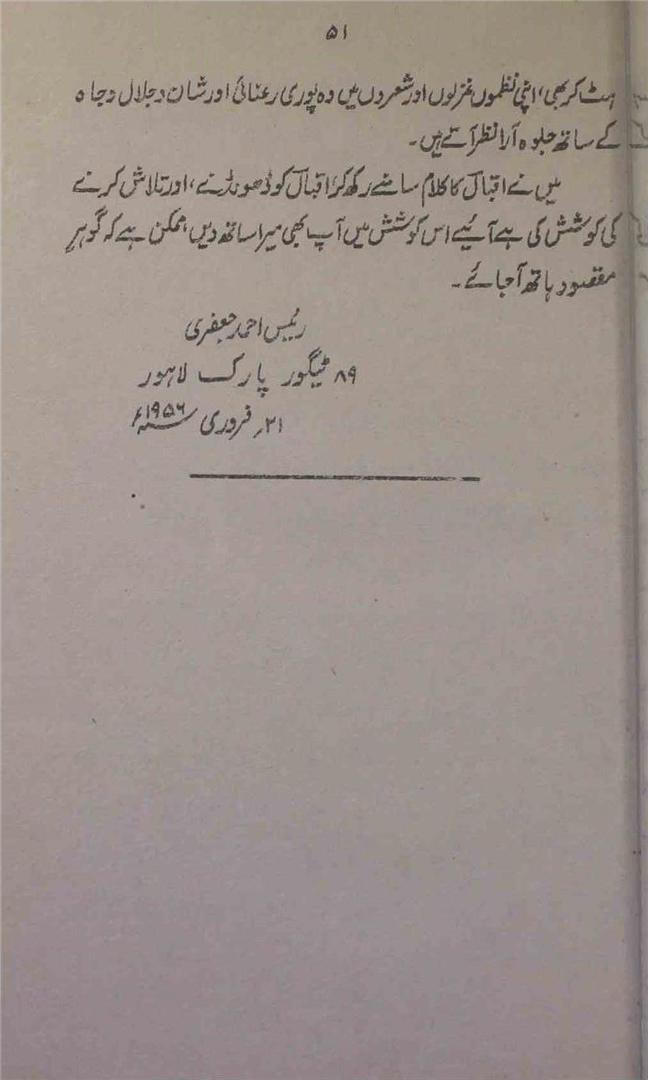 ۵۱
ہٹ کر بھی، اپنی نظموں غزلوں اور شعروں میں وہ پوری رعنائی اور شان و جلال و جاہ
کے ساتھ جلوہ آرا نظر آتے ہیں۔
میں نے اقبالؔ کا کلام سامنے رکھ کر اقبالؔ کو ڈھونڈنے، اور تلاش کرنے
کی کوشش کی ہے آئیے اس کوشش میں آپ بھی میرا ساتھ دیں، ممکن ہے کہ گوہرِ
مقصود ہاتھ آجائے۔
رئیس احمد جعفری
۸۹ ٹیگور پارک لاہور
۲۱؍ فروری سنہ ۱۹۵۶ء